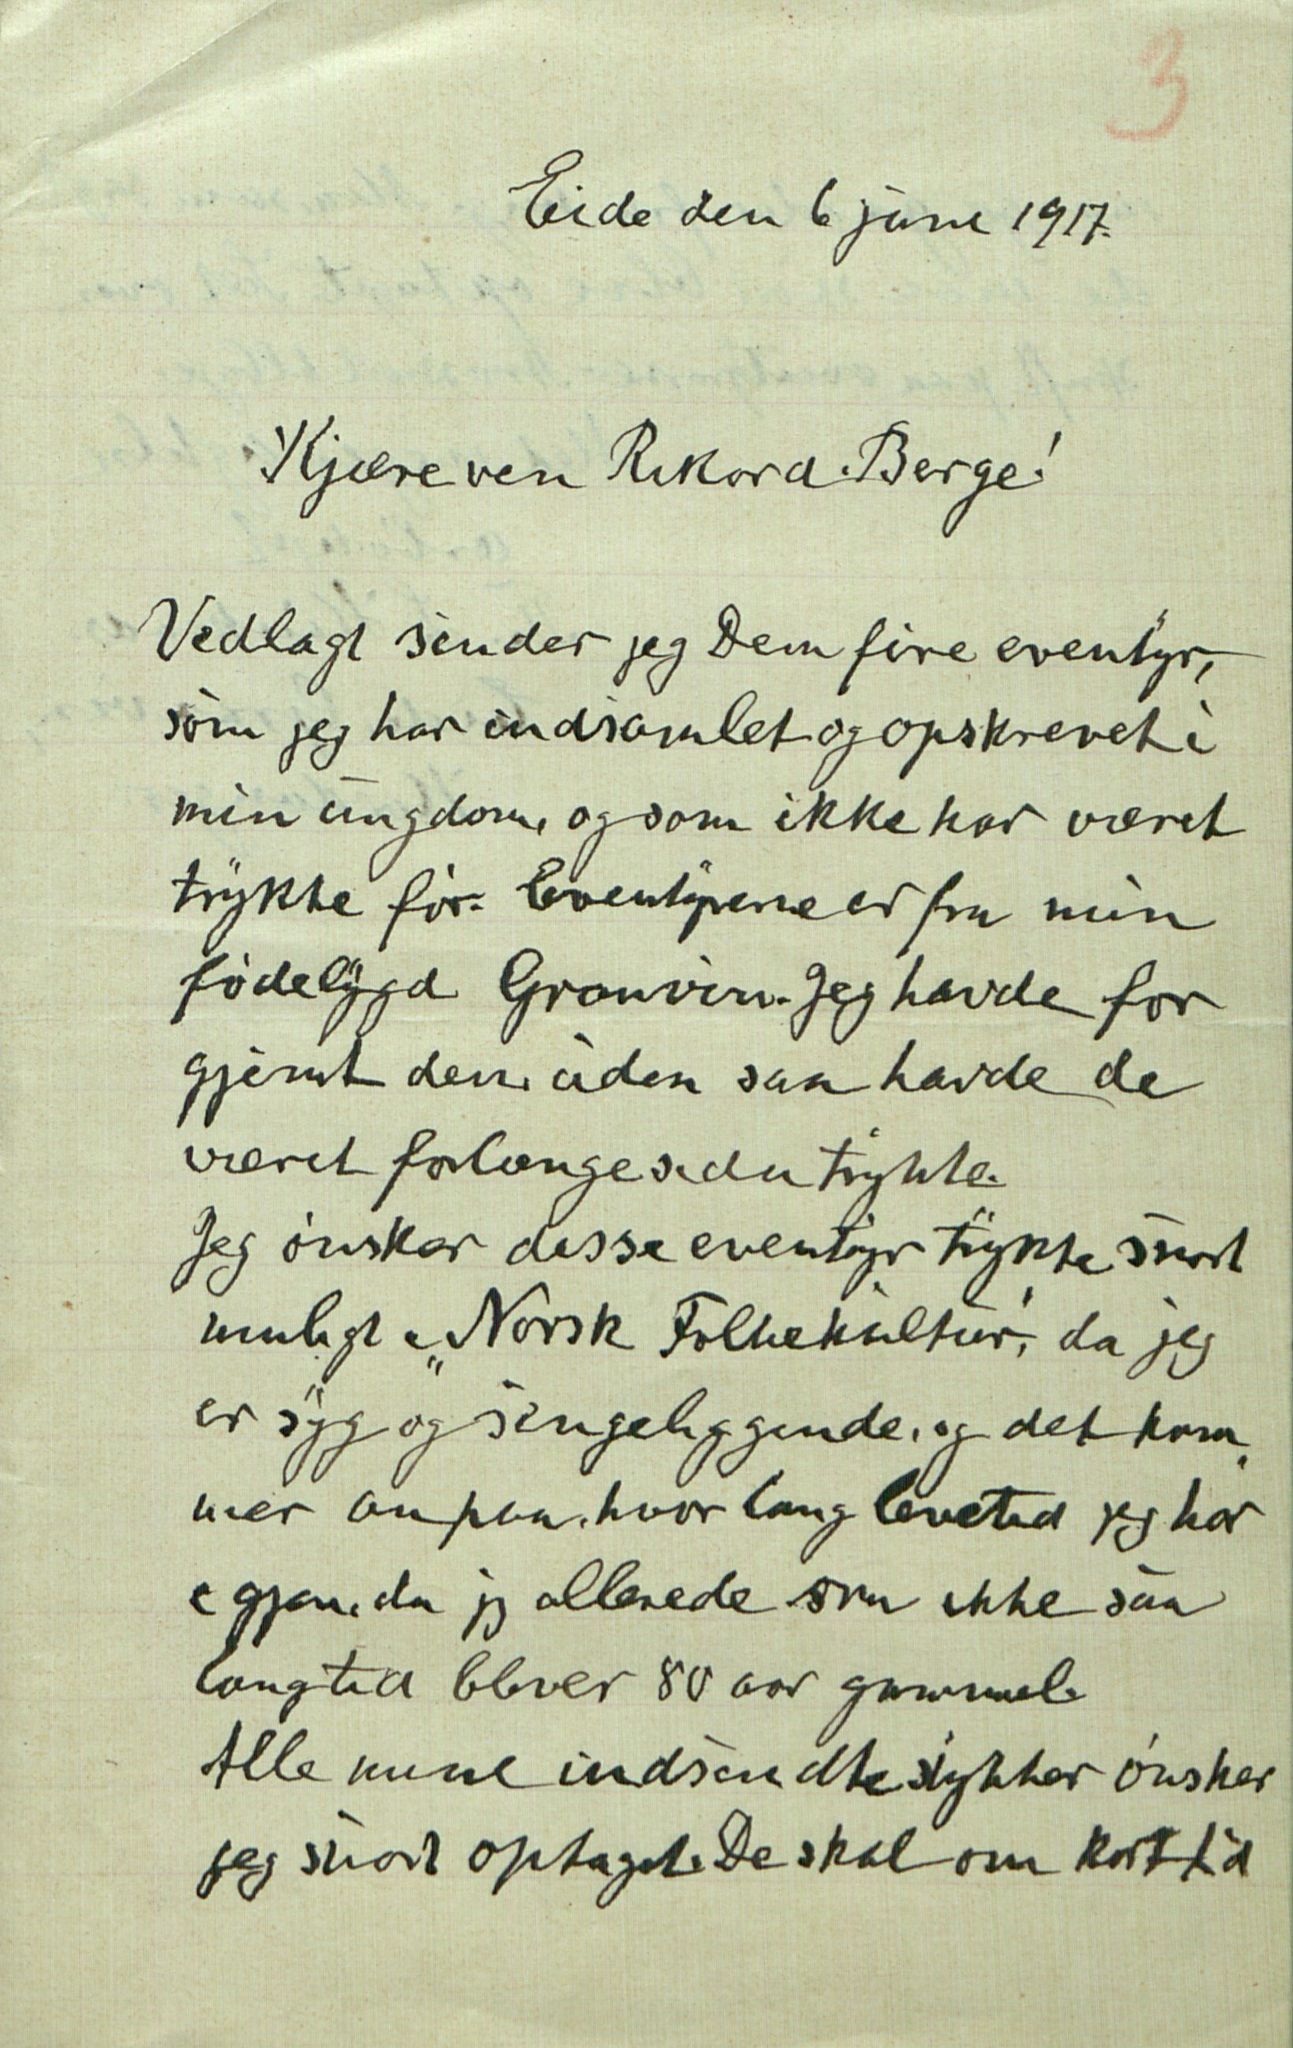 3
Eide den 6 june 1917.
Kjære ven Rikard Berge!
Vedlagt sender jeg Dem fire eventyr,
som jeg har indsamlet og opskrevet i
min ungdom, og som ikke har været
trykte før. Eventyrene er fra min
fødebygd Granvin. Jeg havde for
gjemt dem, uden saa havde de
været forlænge siden trykte.
Jeg ønsker disse eventyr trykte snart
muligt i „Norsk Folkekultur", da jeg
er syg og sengeliggende, og det kom„
mer an paa, hvor lang levetid jeg har
igjen, da jeg allerede om ikke saa
lang tid bliver 80 aar gammel.
Alle mine indsendte stykker ønsker
jeg snart optaget. De skal om kort tid